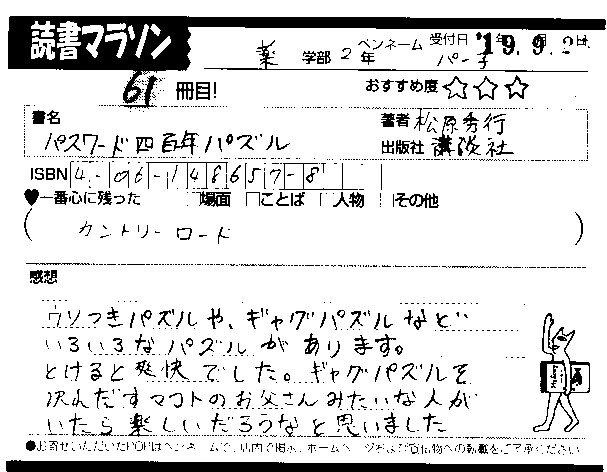 読書マラソン
薬 学部 2年 ペンネーム パー子 受付日 '19.9.2
61 冊目! おすすめ度 ☆☆☆
書名 パスワード四百年パズル
著者 松原秀行
出版社 講談社
ISBN 4-06-148657-8
♥一番心に残った □場面 □ことば □人物 □その他
( カントリーロード )
感想
ウソつきパズルや、ギャグパズルなど
いろいろなパズルがあります。
とけると爽快でした。ギャグパズルを
次々だすマコトのお父さんみたいな人が
いたら楽しいだろうなと思いました
●お寄せいただいたPOPはペンネームで、店内で掲示、ホームページおよび宣伝物への転載をご了承ください